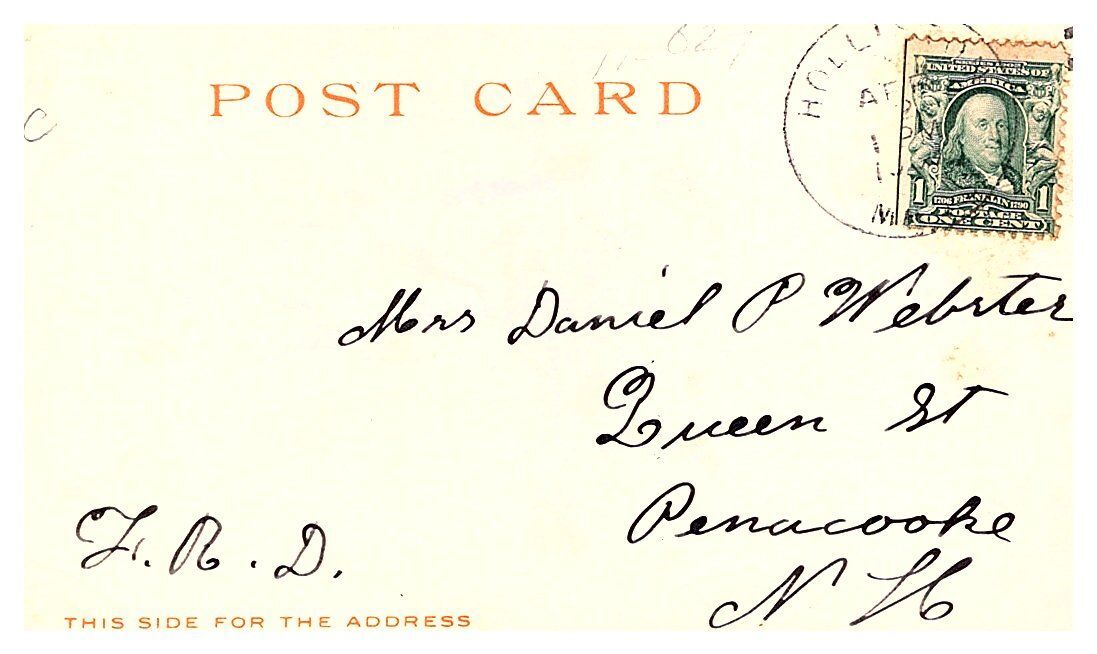 627
POST CARD
SERIES 1902
UNITED STATES OF
AMERICA
1 1706 FRANKLIN 1790 1
POSTAGE
ONE CENT
Mrs Daniel P Webster
Queen St
Penacooke
N H
F. R. D.
THIS SIDE FOR THE ADDRESS